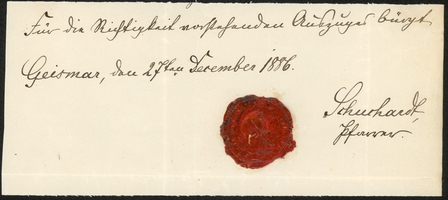 Für die Richtigkeit vorstehenden Auszuges bürgt
Geismar, den 27ten December 1886.
Schuchardt,
Pfarrer.